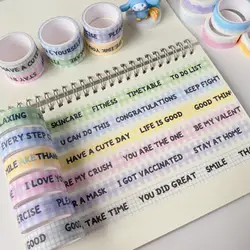 HAVE A CUTE
YOURSELF
PLEASE
AXING
SKINCARE FITNESS TIMETABLE TO DO LIST
EVERY STEP
U CAN DO THIS CONGRATULATIONS KEEP FIGHT
SMILE
HAVE A CUTE DAY LIFE IS GOOD GOOD THIN
I LOVE
BE MY CRUSH YOU ARE THE ONE. BE MY VALEN
A MASK I GOT VACCINATED STAY AT HOME
GOOD. TAKE TIME YOU DID GREAT SMILE